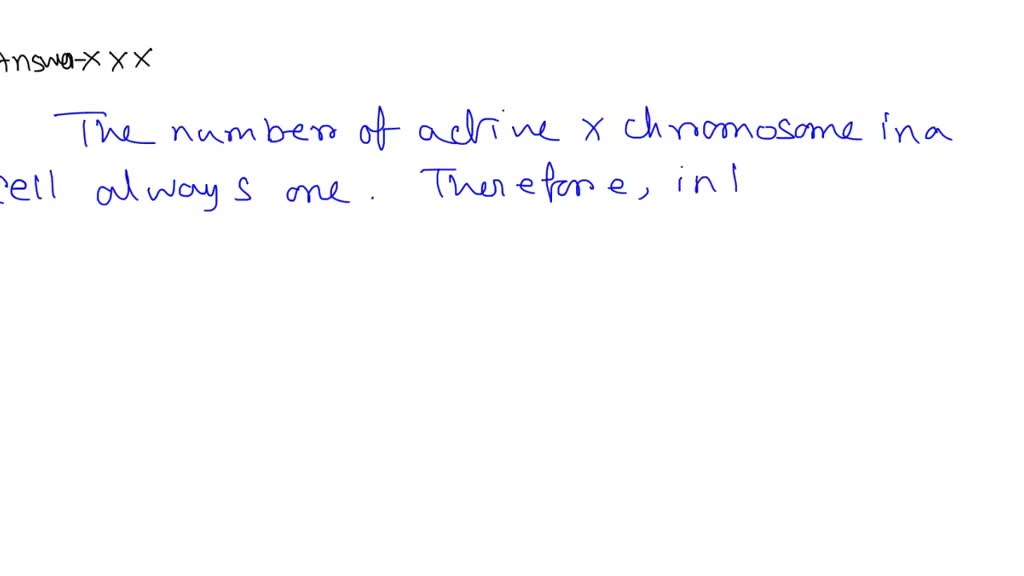 Answer-XXX
The number of active x chromosome in a
cell always one. Therefore, in